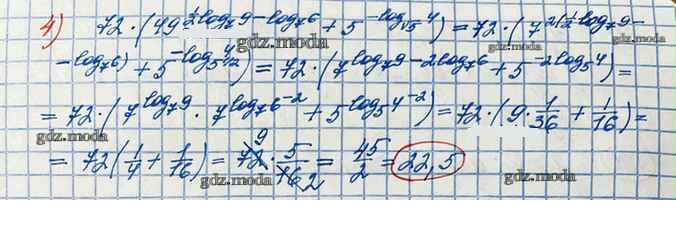 4) 72·(49^(½log₇9−log₇6) + 5^(−log_√5 4)) = 72·(7^(2(½log₇9−
gdz.moda gdz.moda
−log₇6) + 5^(−log_5^½ 4)) = 72·(7^(log₇9−2log₇6) + 5^(−2log₅4)) =
gdz.moda gdz.moda
= 72·(7^(log₇9) · 7^(log₇6⁻²) + 5^(log₅4⁻²)) = 72·(9·1/36 + 1/16) =
gdz.moda gdz.moda
= 72(1/4 + 1/16) = 72⁹·5/16₂ = 45/2 = 22,5
gdz.moda gdz.moda gdz.moda